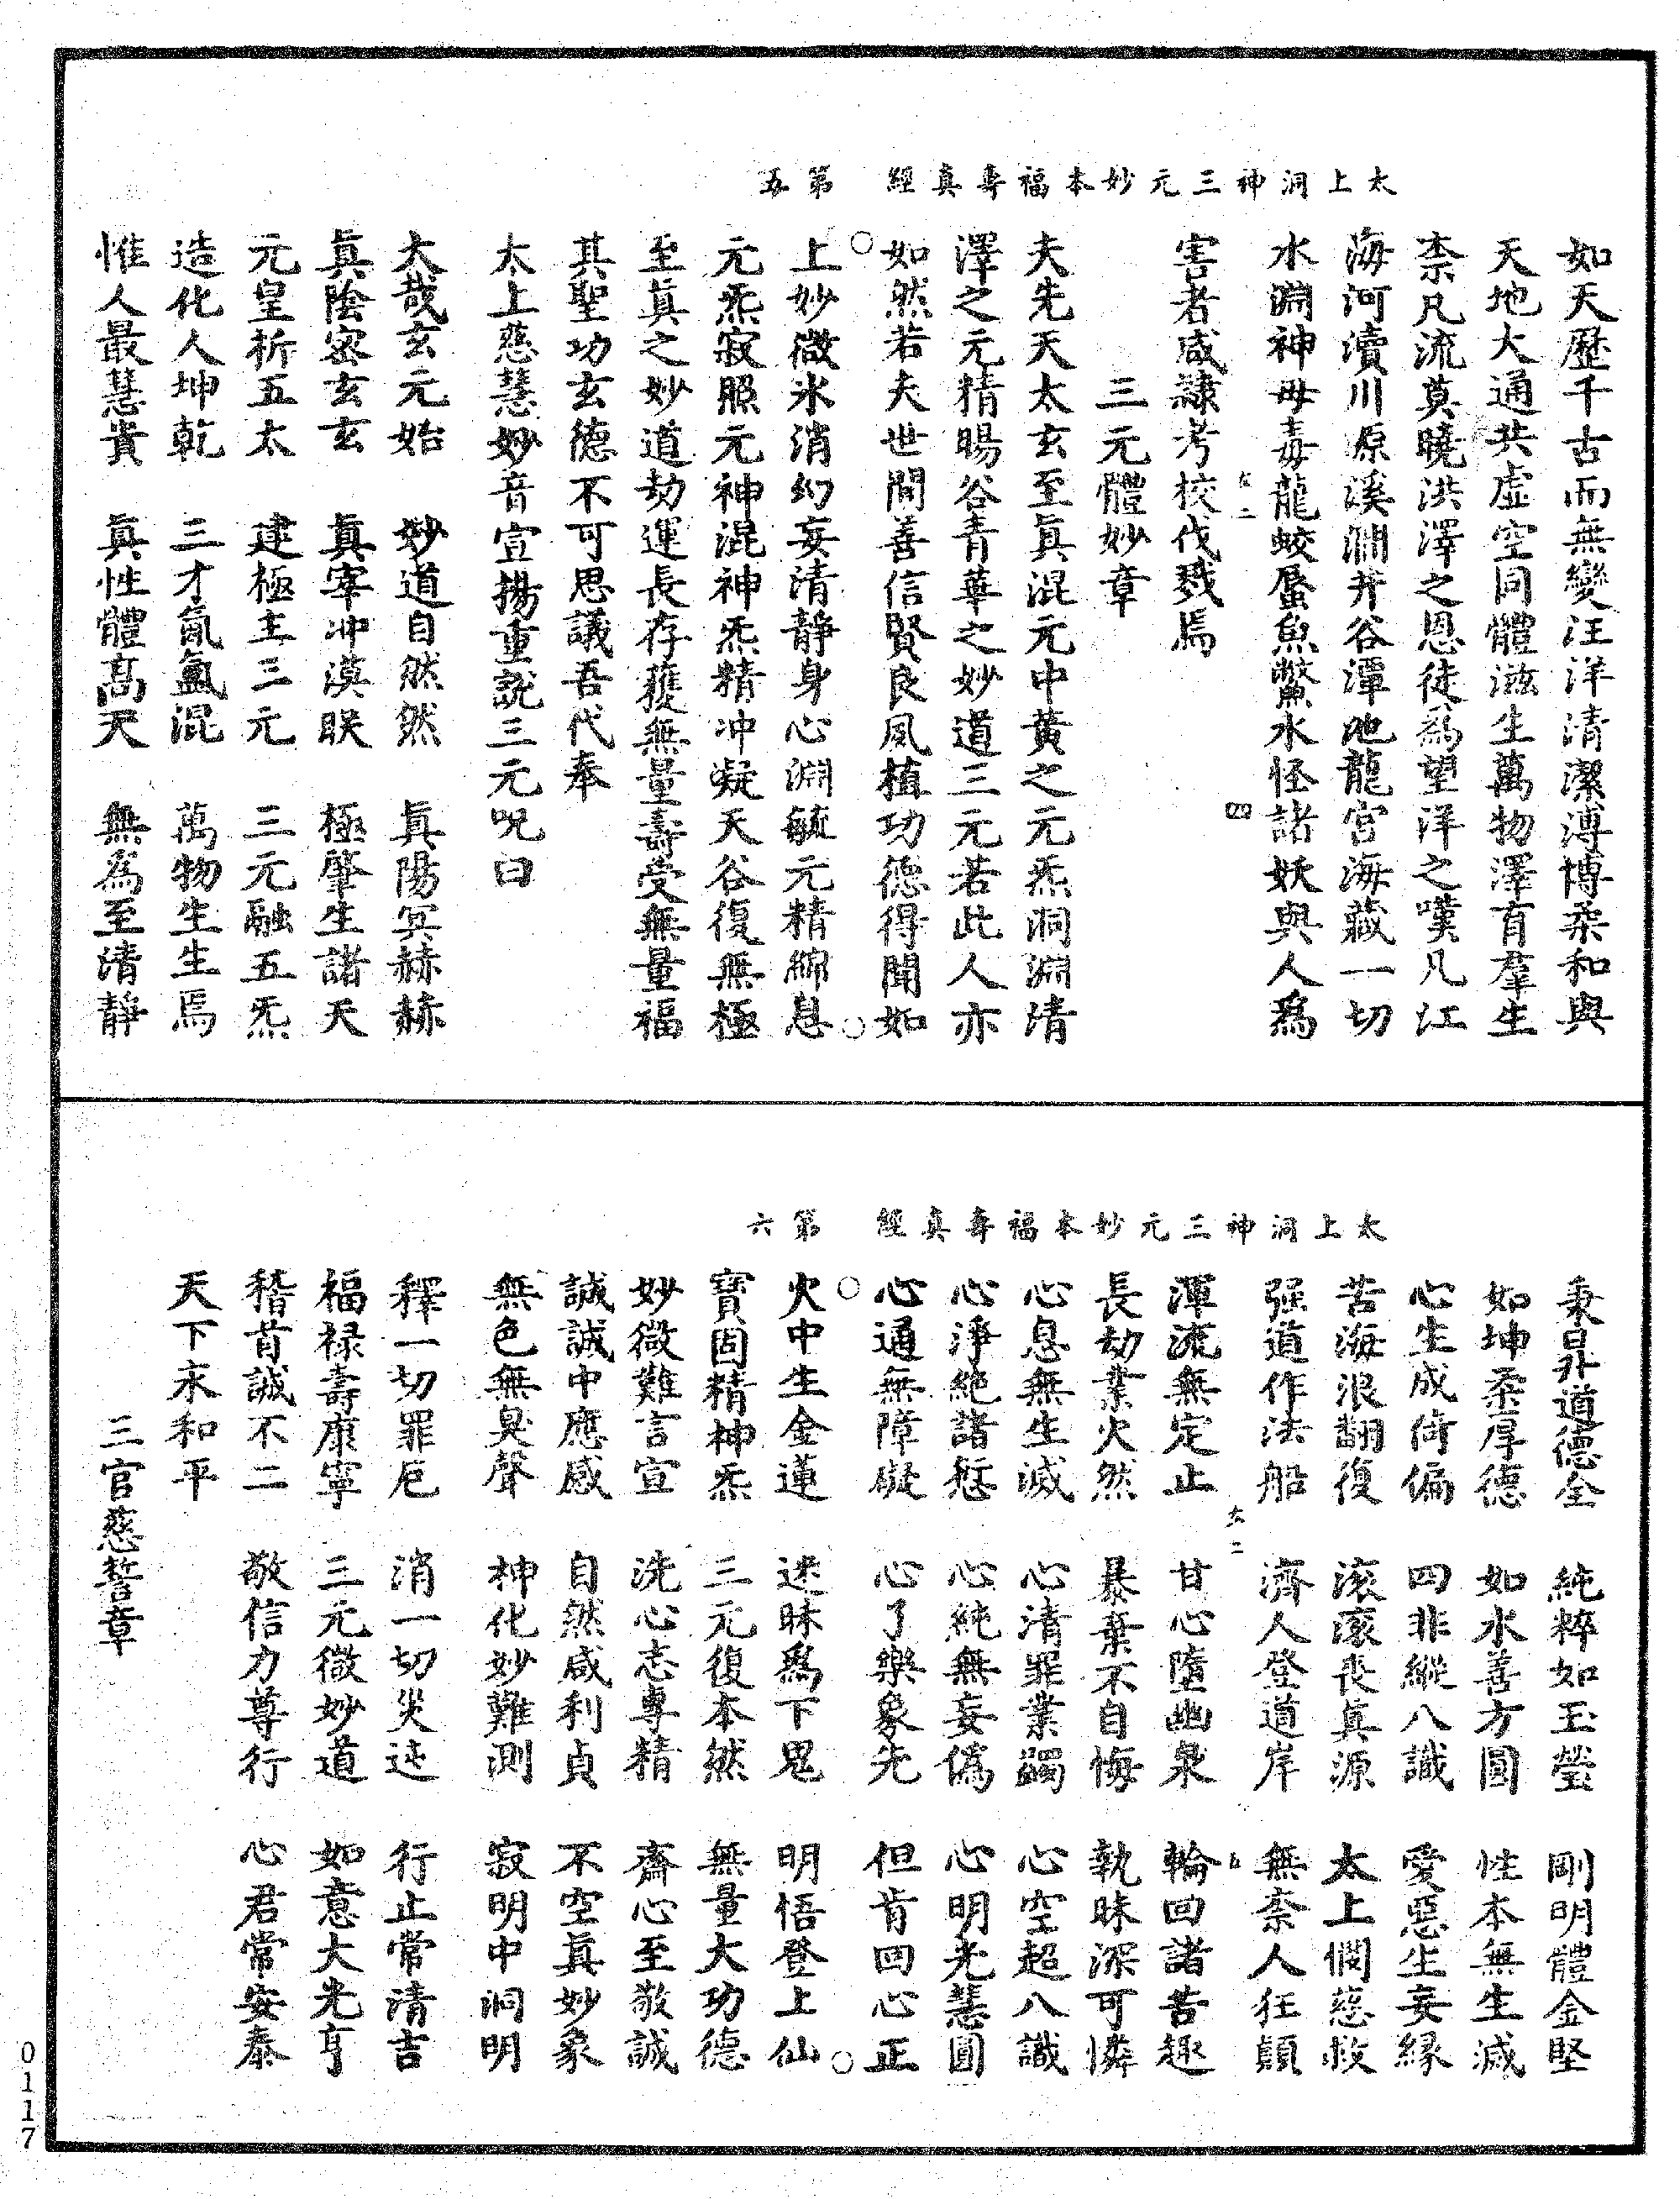 太上洞神三元妙本福壽真經　第五
如天歷千古而無變汪洋清潔溥博柔和與
天地大通共虛空同體滋生萬物澤育羣生
柰凡流莫曉洪澤之恩徒為望洋之嘆凡江
海河瀆川源溪澗井谷潭池龍宮海藏一切
水淵神毋毒龍蛟蜃魚鱉水怪諸妖與人為
害者咸隷考校伐戮焉
四
三元體妙章
夫先天太玄至眞混元中黃之元炁洞淵清
澤之元精暘谷青華之妙道三元若此人亦
如然若夫世間善信賢良夙植功德得聞如
上妙微氷消幻妄清靜身心淵毓元精綿息
元炁寂照元神混神炁精冲凝天谷復無極
至眞之妙道劫運長存獲無量壽受無量福
其聖功玄德不可思議吾代奉
太上慈慧妙音宣揚重說三元呪曰
大哉玄元始　妙道自然然　眞陽㝠赫赫
眞陰密玄玄　眞宰冲漠朕　極肇生諸天
元皇析五太　建極主三元　三元融五炁
造化人坤乾　三才氤氳混　萬物生生焉
惟人最慧貴　眞性體高天　無為至清靜
太上洞神三元妙本福壽真經　第六
秉昇道德全　純粹如玉瑩　剛明體金堅
如坤柔厚德　如水善方圓　性本無生滅
心生成倚偏　四非縱八識　愛惡生妄緣
苦海浪翻復　滚滚丧真源　太上憫慈救
强道作法船　濟人登道岸　無柰人狂顛
渾流無定止　甘心墮幽泉　輪回諸苦趣
長劫業火然　暴棄不自悔　執昧深可憐
心息無生滅　心清罪業蠲　心空超八識
心淨絕諸愆　心純無妄偽　心明光慧圓
心通無障礙　心了樂象先　但肯回心正
火中生金蓮　迷昧為下鬼　明悟登上仙
寶固精神炁　三元復本然　無量大功德
妙微難言宣　洗心志專精　齋心至敬誠
誠誠中應感　自然咸利貞　不空眞妙象
無色無臭聲　神化妙難測　寂明中洞明
釋一切罪厄　消一切災迍　行止常清吉
福禄壽康寧　三元微妙道　如意大光亨
稽首誠不二　敬信力尊行　心君常安泰
天下永和平
三官慈誓章
0117